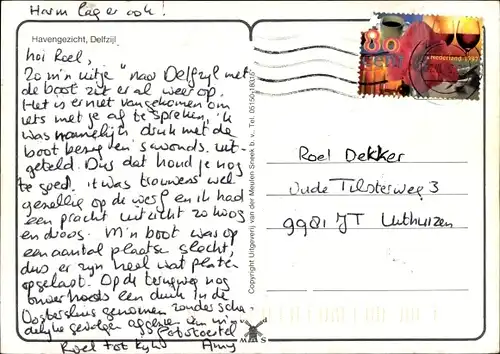 Harm lag er ook!
Havengezicht, Delfzijl
Hoi Roel,
Zo m'n uitje naar Delfzijl met
de boot zit er al weer op.
Het is er niet van gekomen om
iets met je af te spreken, ik
was namelijk druk met de
boot bezig en 's avonds uit-
geteld. Dus dat houd je nog
te goed. 't was trouwens wel
gezellig op de werf en ik had
een pracht uitzicht zo hoog
en droog. M'n boot was op
een aantal plaatsen slecht,
dus er zijn heel wat platen
opgelapt. Op de terugweg nog
onverhoods een duik in de
Oostersluis genomen zonder scha-
delijke gevolgen afgezien van m'n
fototoestel
Roel tot kijk Amy
Copyright Uitgeverij van der Meulen Sneek b. v. Tel. 05150-18316
MMS
80
cent
Nederland 1997
Roel Dekker
Oude Tilsterweg 3
9981 JT Uithuizen